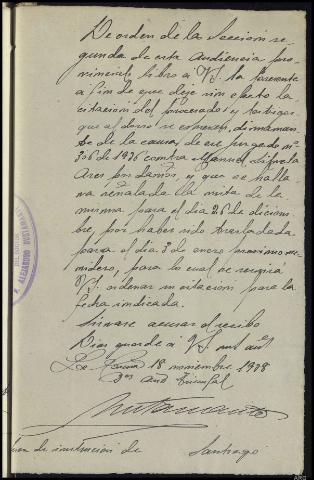 De orden de la Sección se
gunda de esta Audiencia pro
vincial libro a V.S. la presente
a fin de que deje sin efecto la
citación del procesado y testigos
que al dorso se expresan, dimanan
te de la causa de ese juzgado nº
306 de 1936 contra Manuel
Ares por daños, y que se halla
va señalada la vista de la
misma para el día 26 de diciem
bre, por haber sido trasladada
para el día 3 de enero proximo ve
nidero, para lo cual se servirá
V.S. ordenar su citación para la
fecha indicada.
Sirvase acusar el recibo
Dios guarde a V.S. m. añ
La Coruña 18 noviembre 1938
3er año Triunfal
Juez de instrucción de Santiago
ALEJANDRO